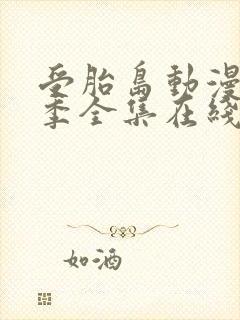 受胎島動漫
季全集在綫
如酒